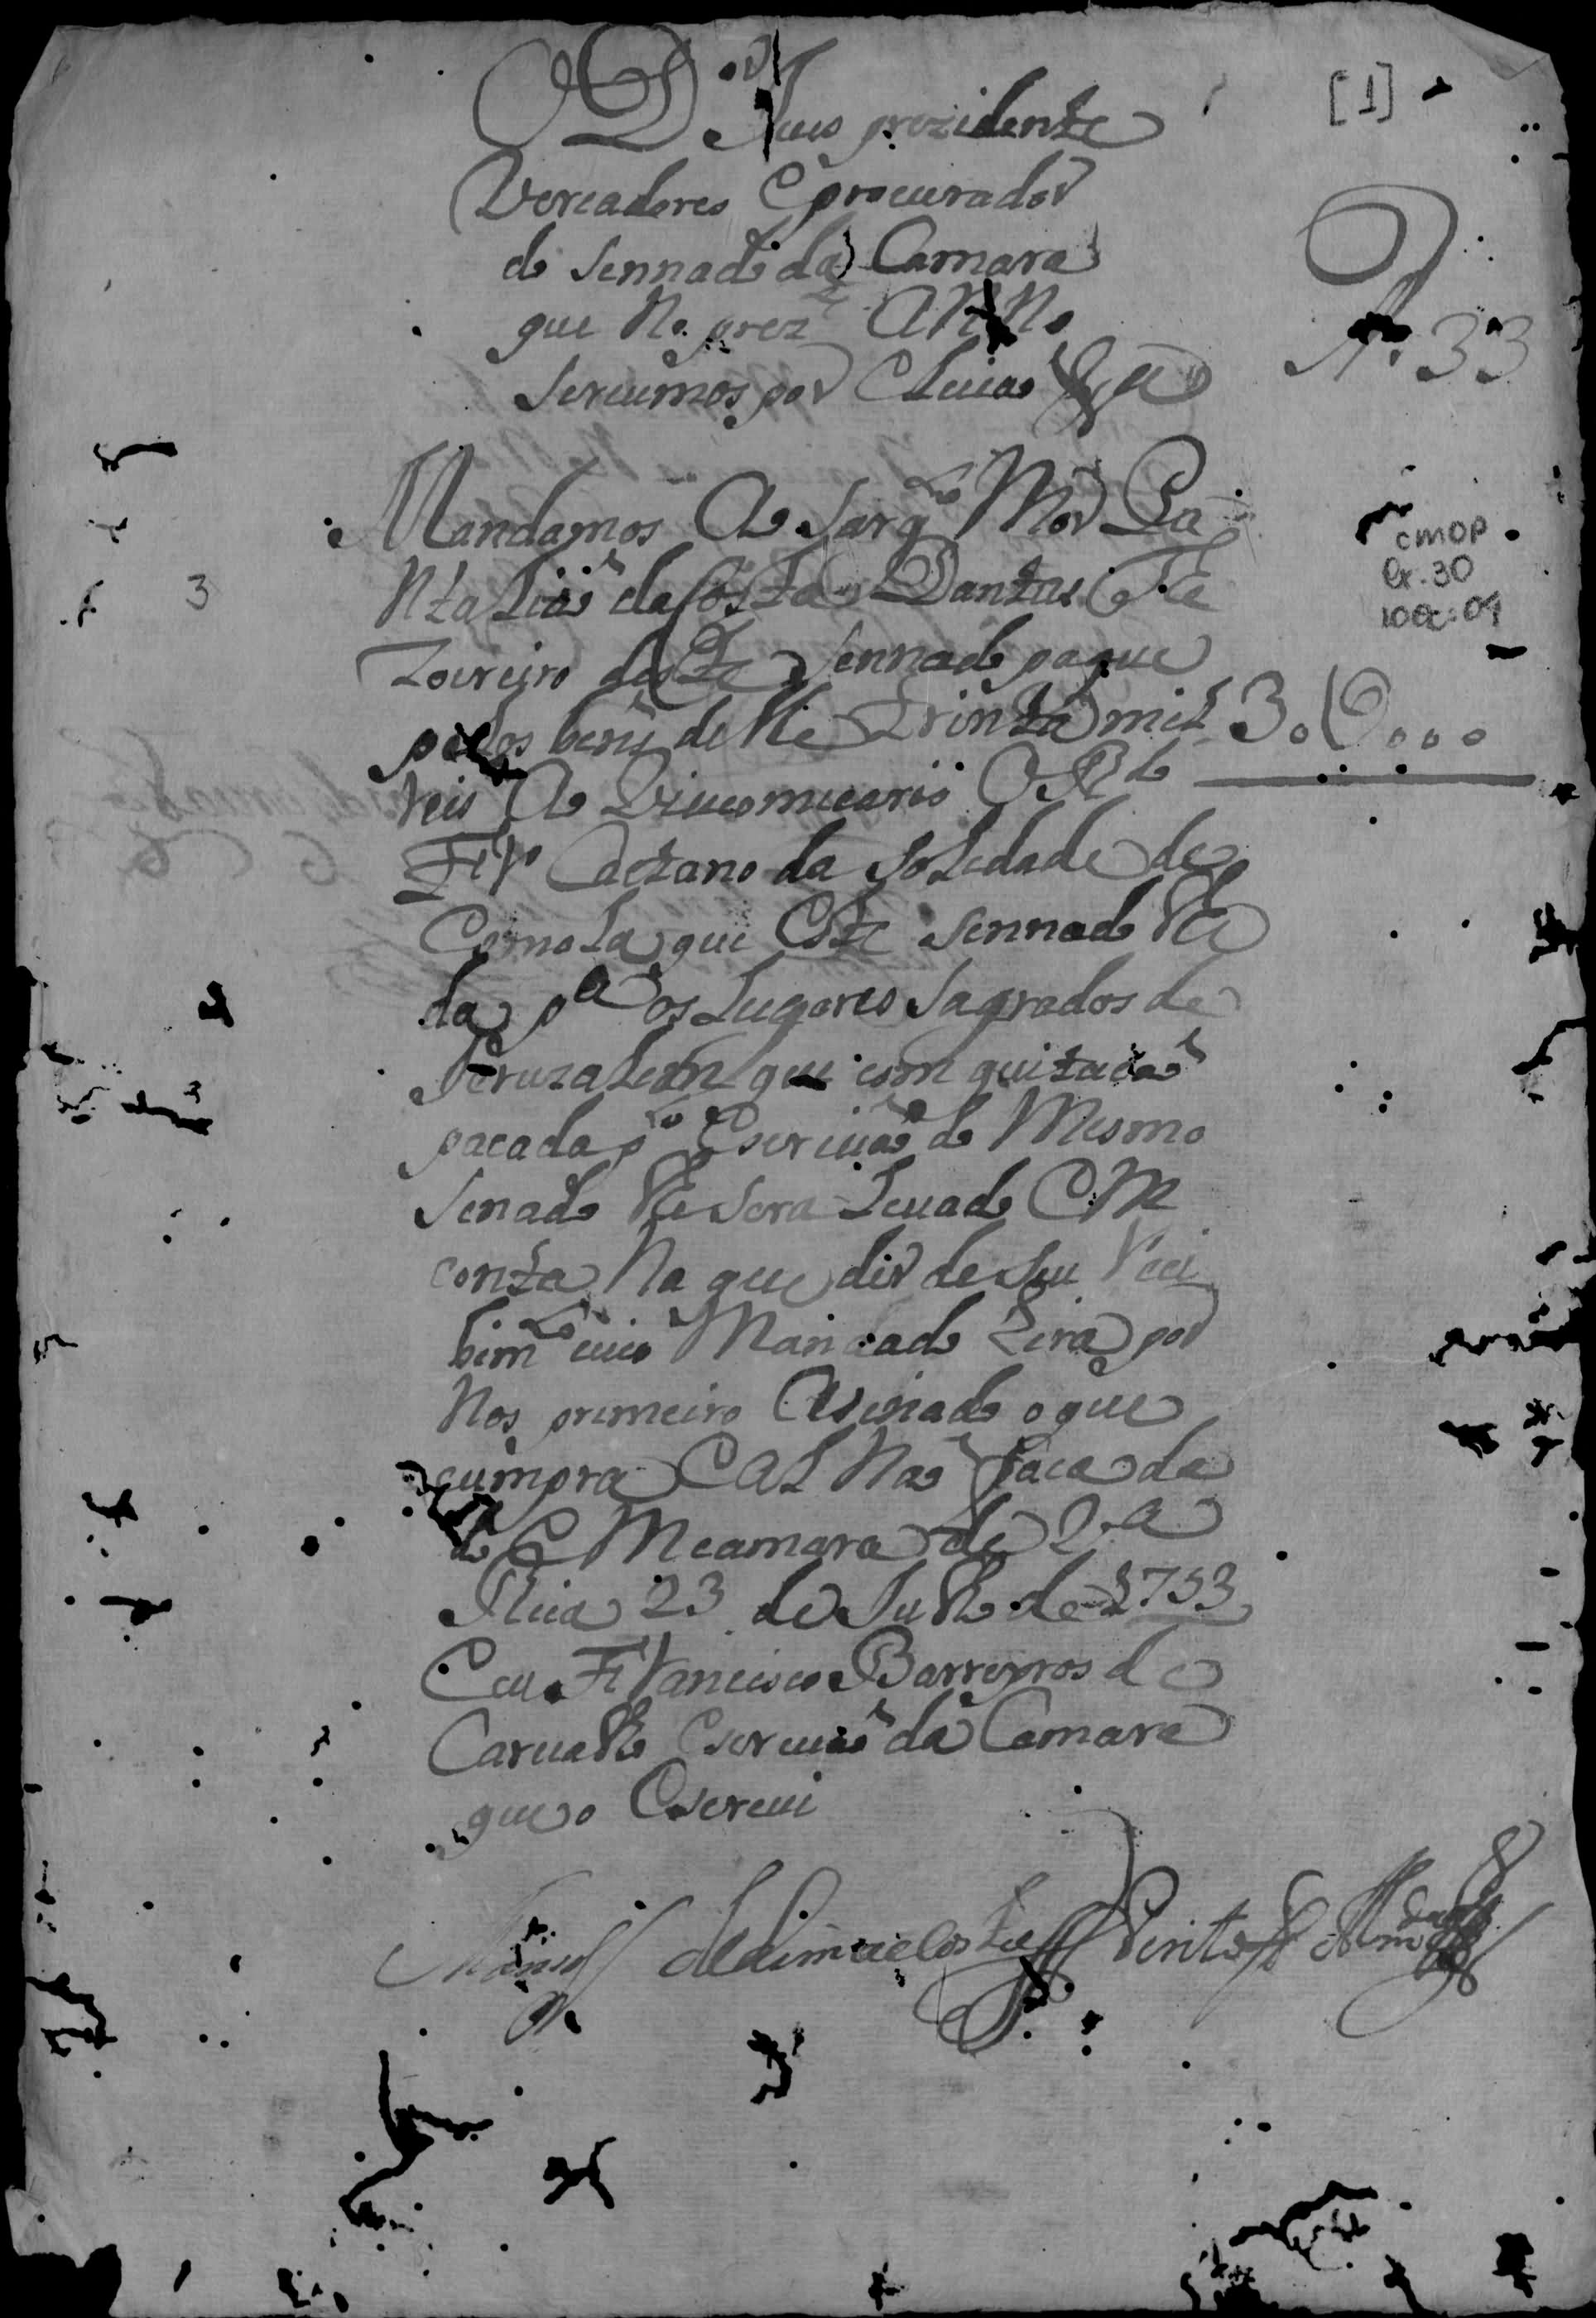 [1]
O D.or Juis prezidente
Vereadores E procurador
do Sennado da Camara
que No prez.te ANNo
Seruimos por Eleicaõ &.a
N.o 33
Mandamos Ao Sarg.to Mor Pa
Ntaliaõ da Costa Dantas Te
Zoureiro deste Sennado pague
pelos bens delle Trinta mil
30U000
Reis Ao Vicomicario O R.do
Fr. Caetano da Soledade de
Esmola que Este Sennado
da p.a os Lugares Sagrados de
Jeruzalem que com quitacaõ
pacada p.lo Escriuaõ do Mesmo
Senado lhe Sera Leuado EM
conta Na que der de Seu Reci
bim.to cuio Mandado Sera por
Nos primeiro Asinado o que
cumpra E Al Naõ faca da
do EM camara de V.a
Rica 23 de Julho de 1753
Eu Francisco Barreyros de
Carualho Escriuaõ da Camara
que o Escreui
CMOP
Cx. 30
Doc: 01
3
de Lima e Costa Pinto